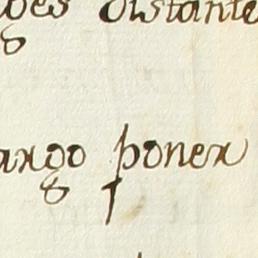 des distante
argo poner